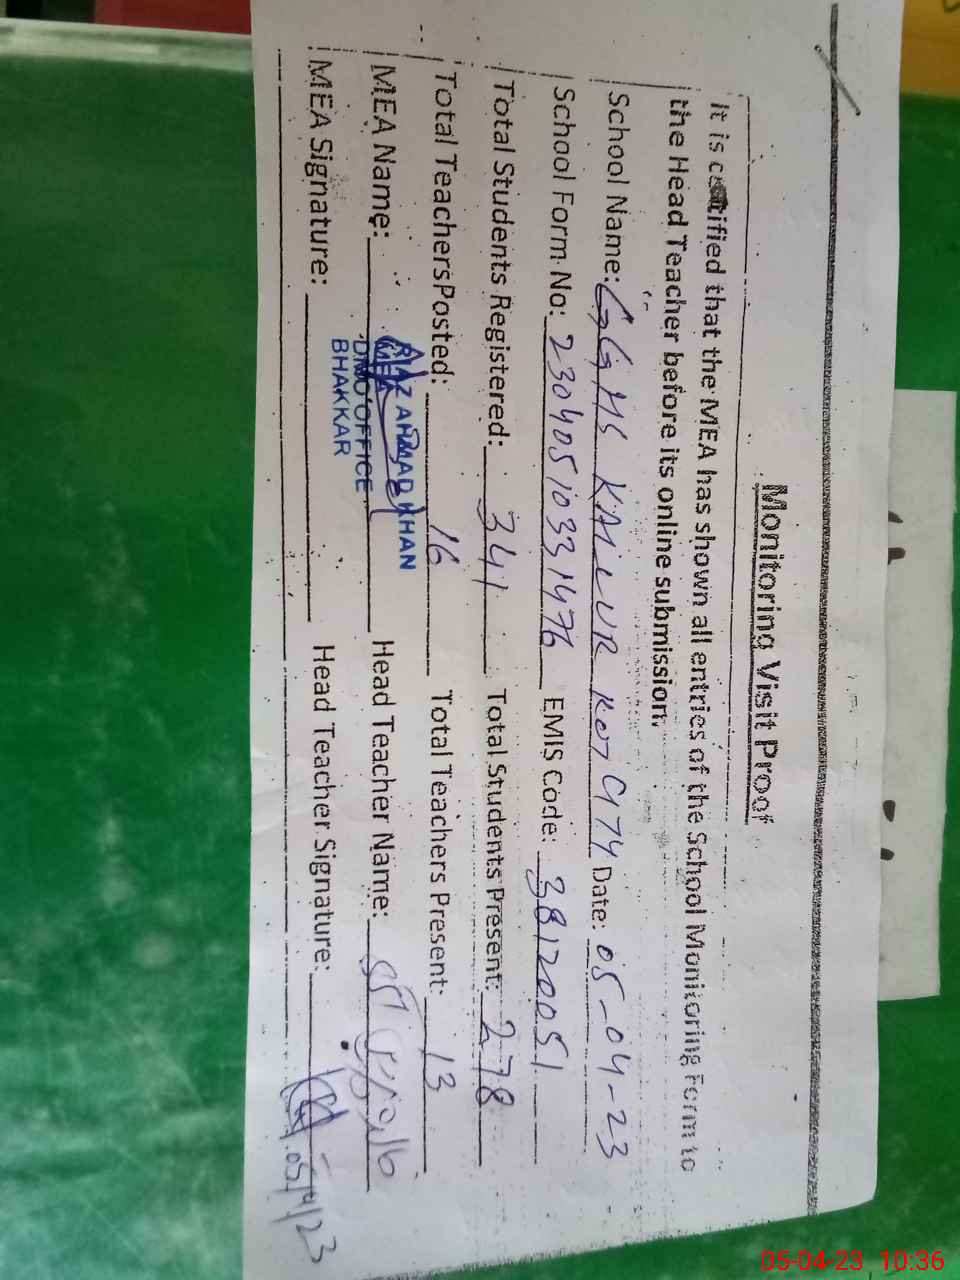 Monitoring Visit Proof
It is certified that the MEA has shown all entries of the School Monitoring Form to
the Head Teacher before its online submission.
School Name: GGHS KALLUR KOT CITY Date: 05-04-23
School Form No: EMIS Code: 38120051
Total Students Registered: 341 Total Students Present: 278
Total Teachers Posted: 16 Total Teachers Present: 13
MEA Name: RIAZ AHMAD KHAN
MEA
DMO OFFICE
BHAKKAR
Head Teacher Name:
MEA Signature: Head Teacher Signature: 05/4/23
05-04-23 10:36